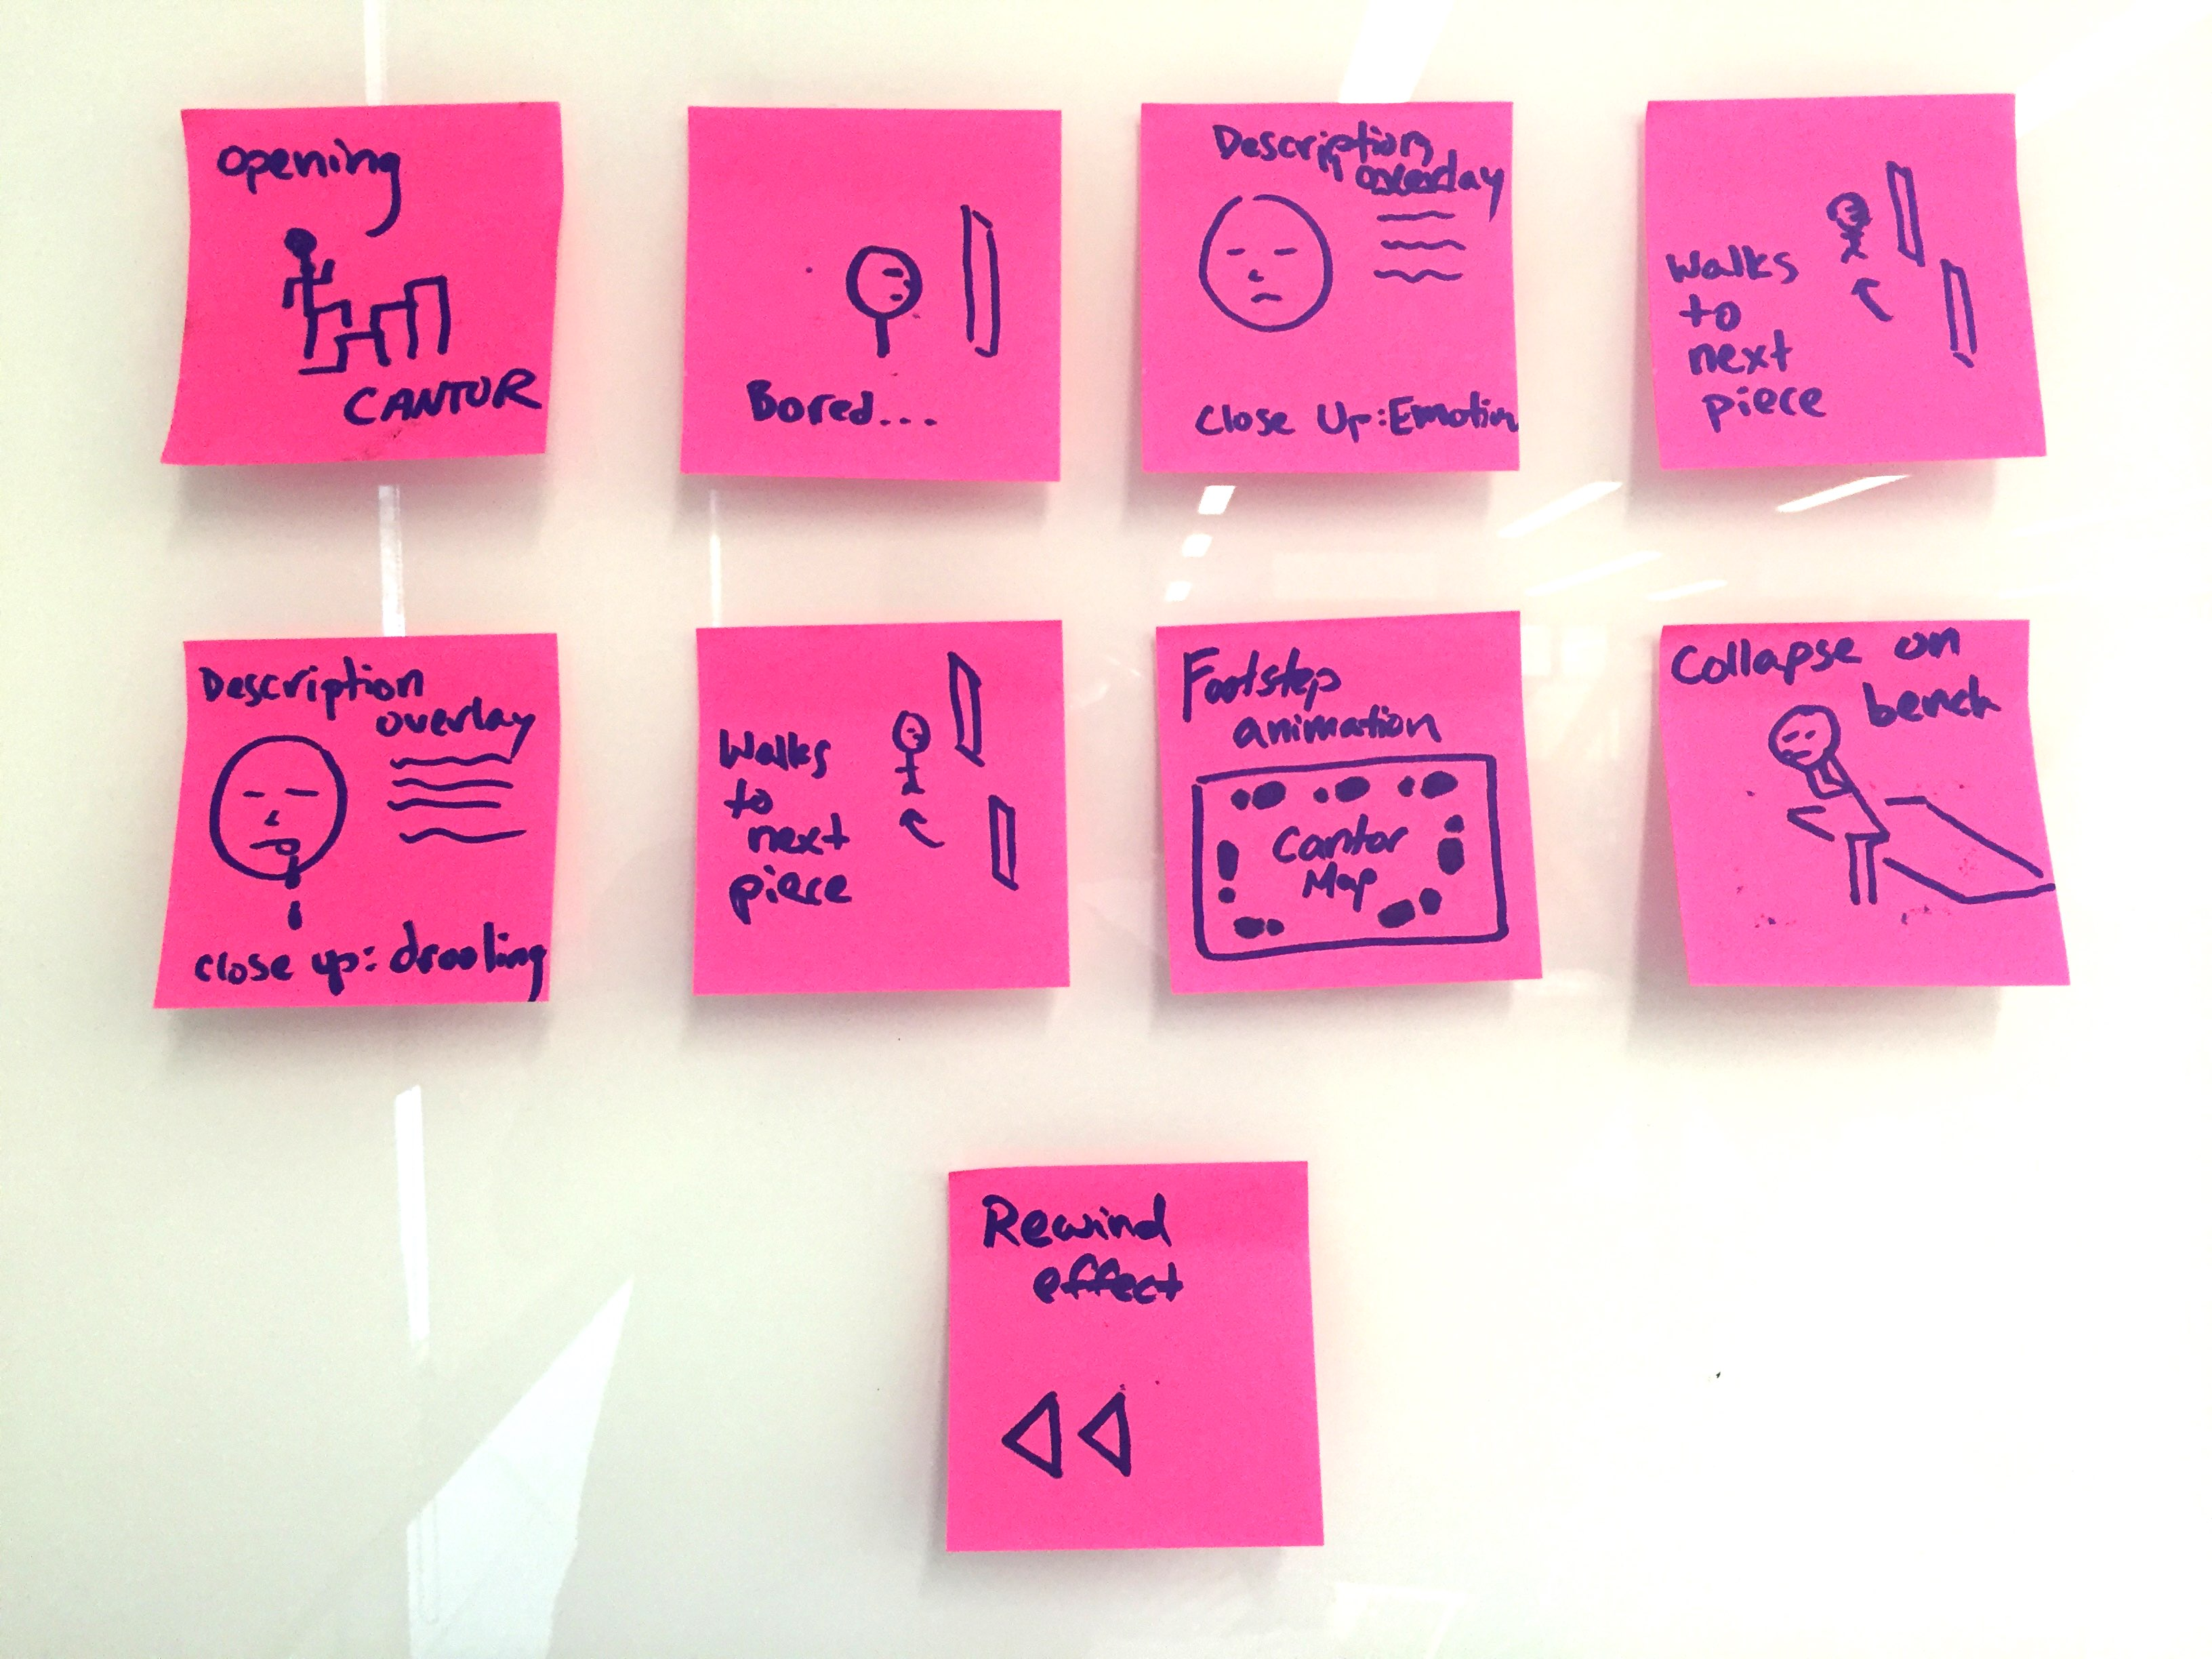 opening
CANTOR
Bored...
Description
overlay
Close Up: Emotion
Walks
to
next
piece
Description
overlay
close up: drooling
Walks
to
next
piece
Footstep
animation
Cantor
Map
Collapse on
bench
Rewind
effect